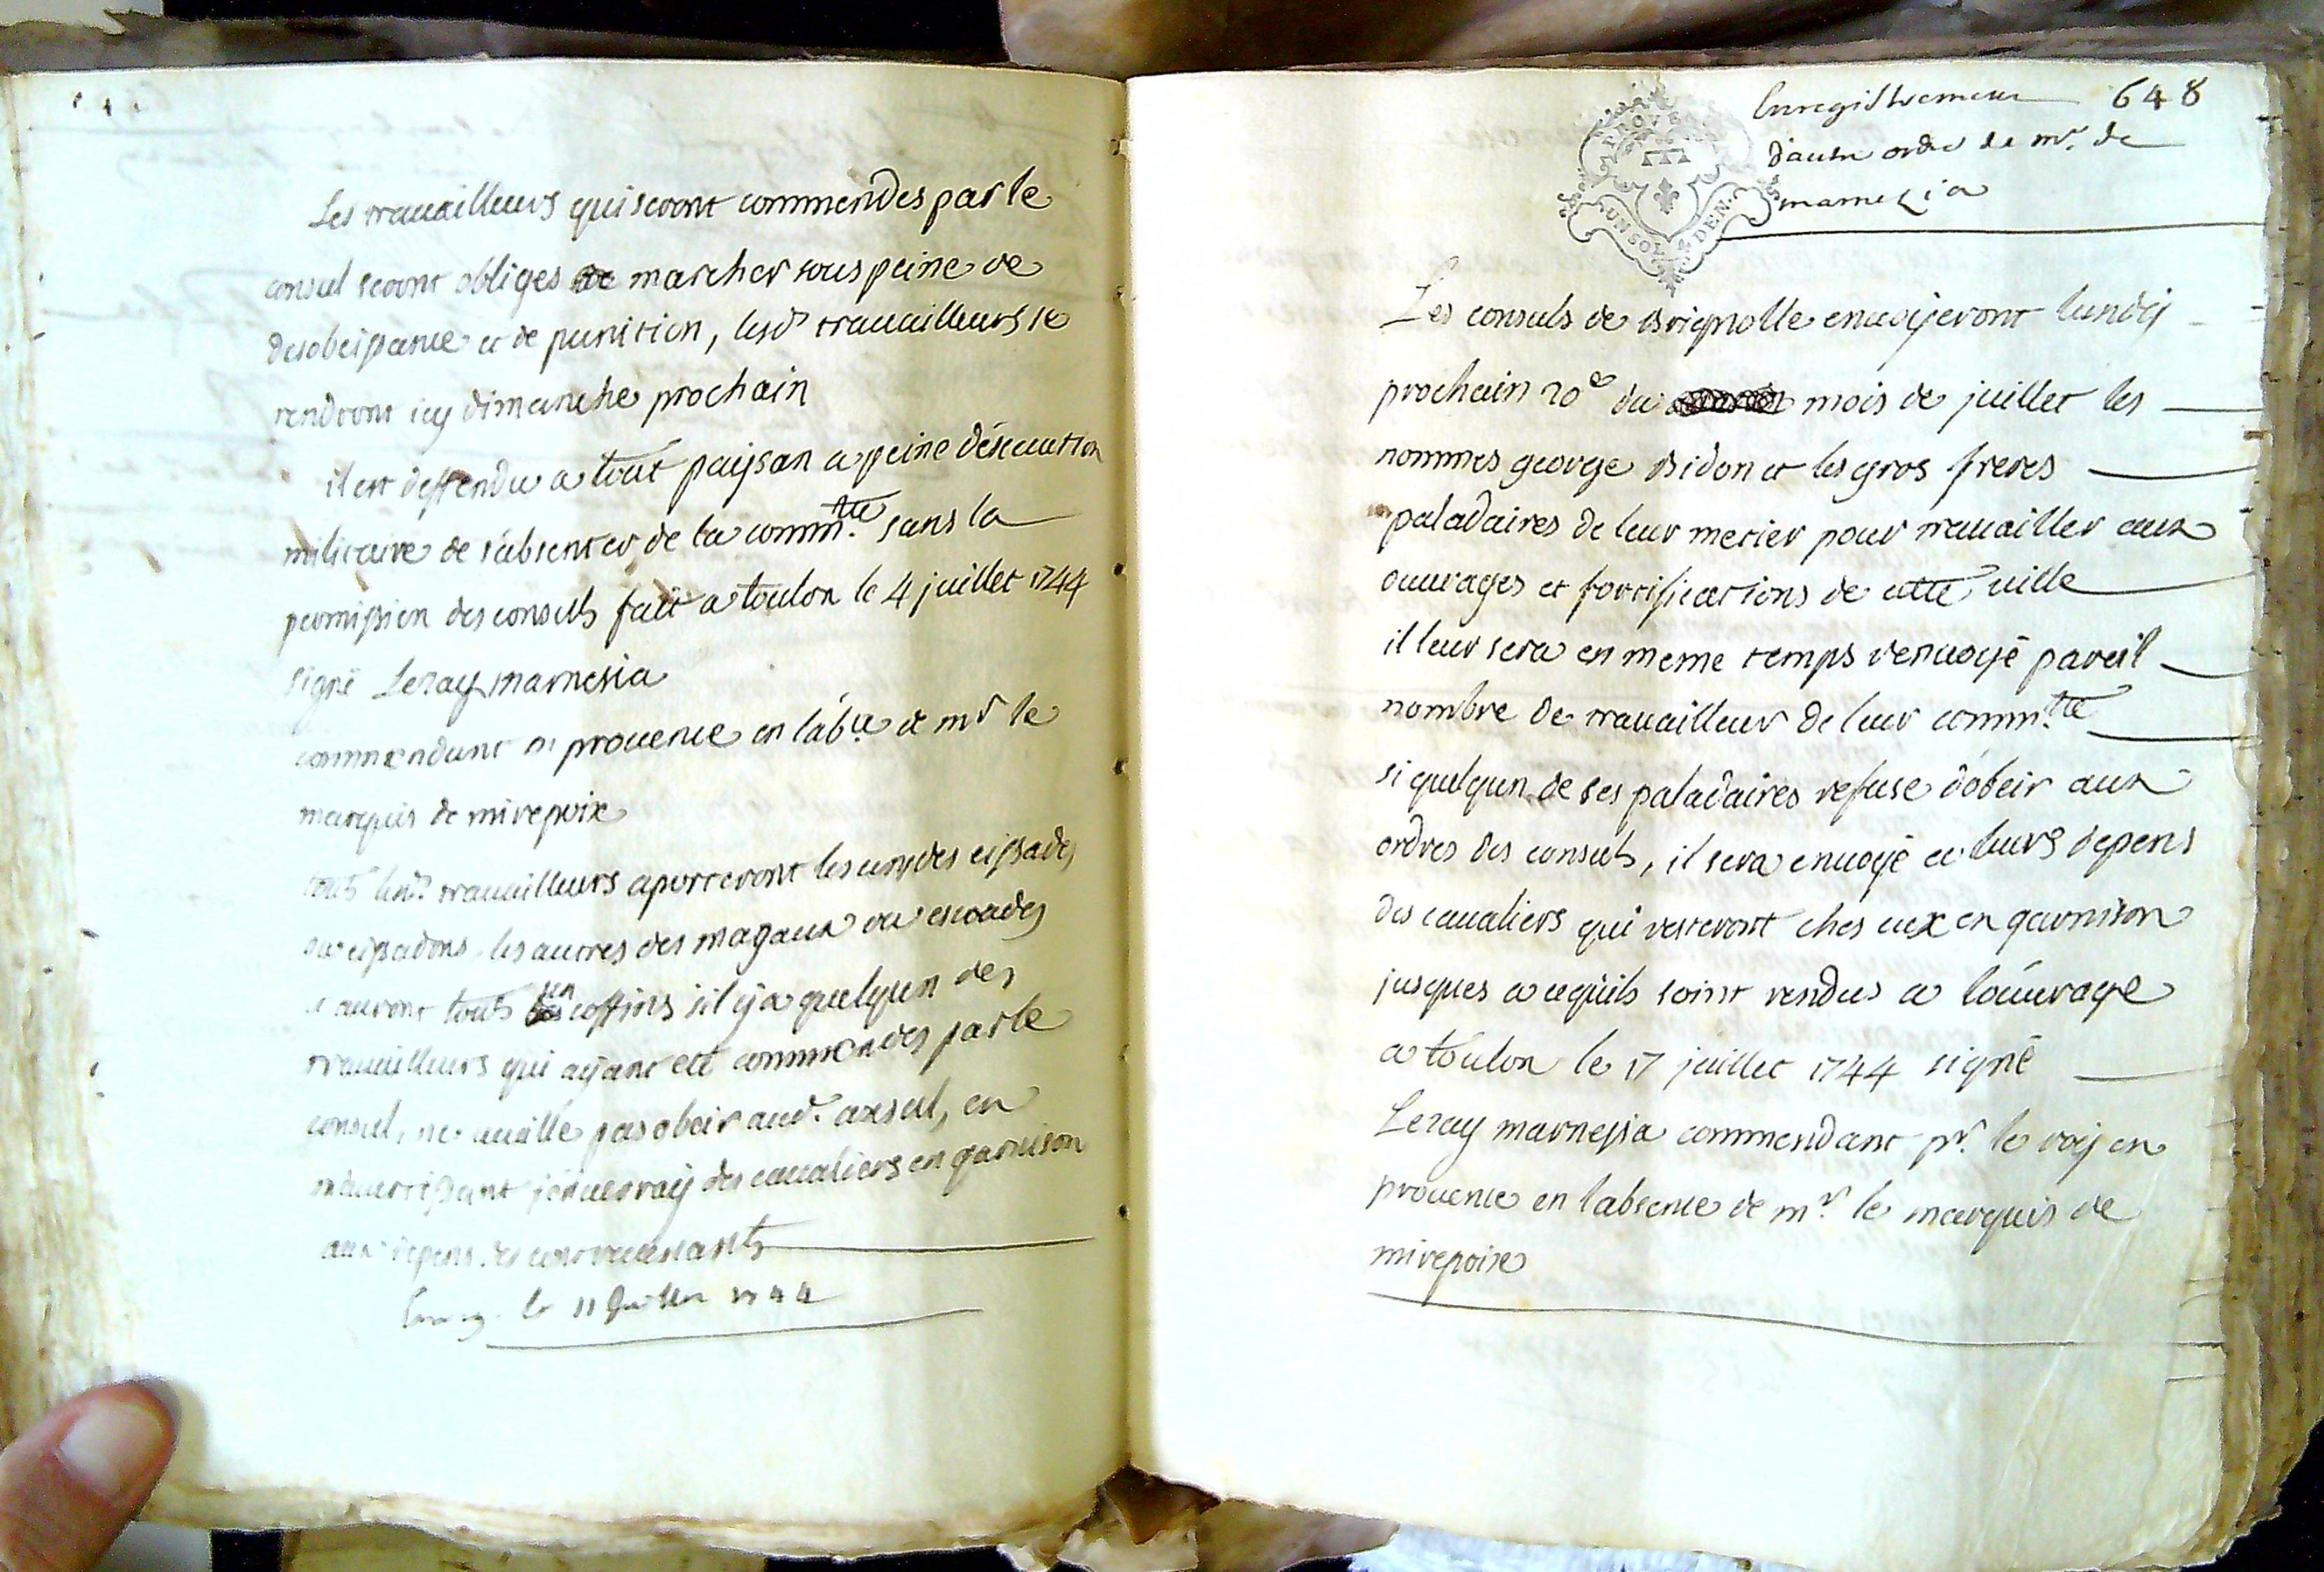 Les travailleurs qui seront commendes par le
consul seront obliges de marcher sous peine de
desobeissance et de punition, lesd. travailleurs se
rendront icy dimanche prochain
il est deffendu a tout paysan a peine déxecution
militaire de s'absenter de la comm.tte sans la
permission des consuls fait a toulon le 4 juillet 1744
signé Lezay marnesia
commendant en provence en l'ab.ce de mr le
marquis de mirepoix
tous lesd. travailleurs aporteront les uns des eissades
ou eissadons les autres des magaux ou escoades
et auront tous un coffins s'il y a quelqun des
travailleurs qui ayant eté commendes par le
consul, ne veuille pas obeir aud. consul, en
m'avertissant j'envesray des cavaliers en garnison
aux depens des contrevenants
le 11 juillet 1744
Enregistrement 648
d'autre ordre de mr. de
marnezia
PROVEN
UN SOL DEN.
Les consuls de Brignolle envoyeront lundy
prochain 20e du mois de juillet les
nommes george Bidon et les gros freres
paladaires de leur metier pour travailler aux
ouvrages et fortifications de cette ville
il leur sera en meme temps renvoyé pareil
nombre de travailleur de leur comm.tte
si quelqun de ses paladaires refuse d'obeir aux
ordres des consuls, il sera envoyé a leurs depens
des cavaliers qui resteront ches eux en garnison
jusques a cequ'ils soint rendus a l'ouvrage
a toulon le 17 juillet 1744 signé
Lezay marnesia commendant pr. le roy en
provence en l'absence de mr. le marquis de
mirepoix